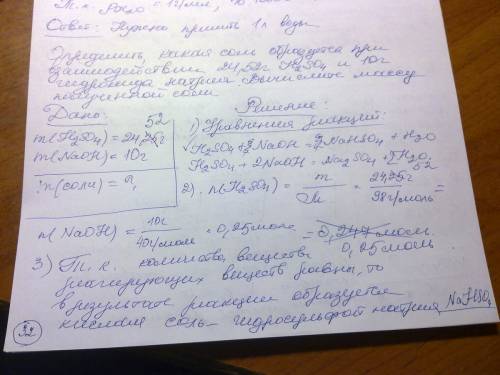 Т.к. ρH₂O = 1г/мл, то
Ответ: Нужно прилить 1л воды
Определить, какая соль образуется при
взаимодействии 24,52г H₂SO₄ и 10г
гидроксида натрия. Вычислите массу
полученной соли
Дано:
Решение:
52
m(H₂SO₄) = 24,25г
m(NaOH) = 10г
m(соли) = ?
1) Уравнения реакций:
H₂SO₄ + NaOH = NaHSO₄ + H₂O
H₂SO₄ + 2NaOH = Na₂SO₄ + 2H₂O
2). n(H₂SO₄) = m/M = 24,25г/98г/моль =
52
n(NaOH) = 10г/40г/моль = 0,25моль
= 0,247моль.
0,25моль
3) Т.к. количества веществ
реагирующих веществ равны, то
в результате реакции образуется
кислая соль - гидросульфат натрия NaHSO₄
32